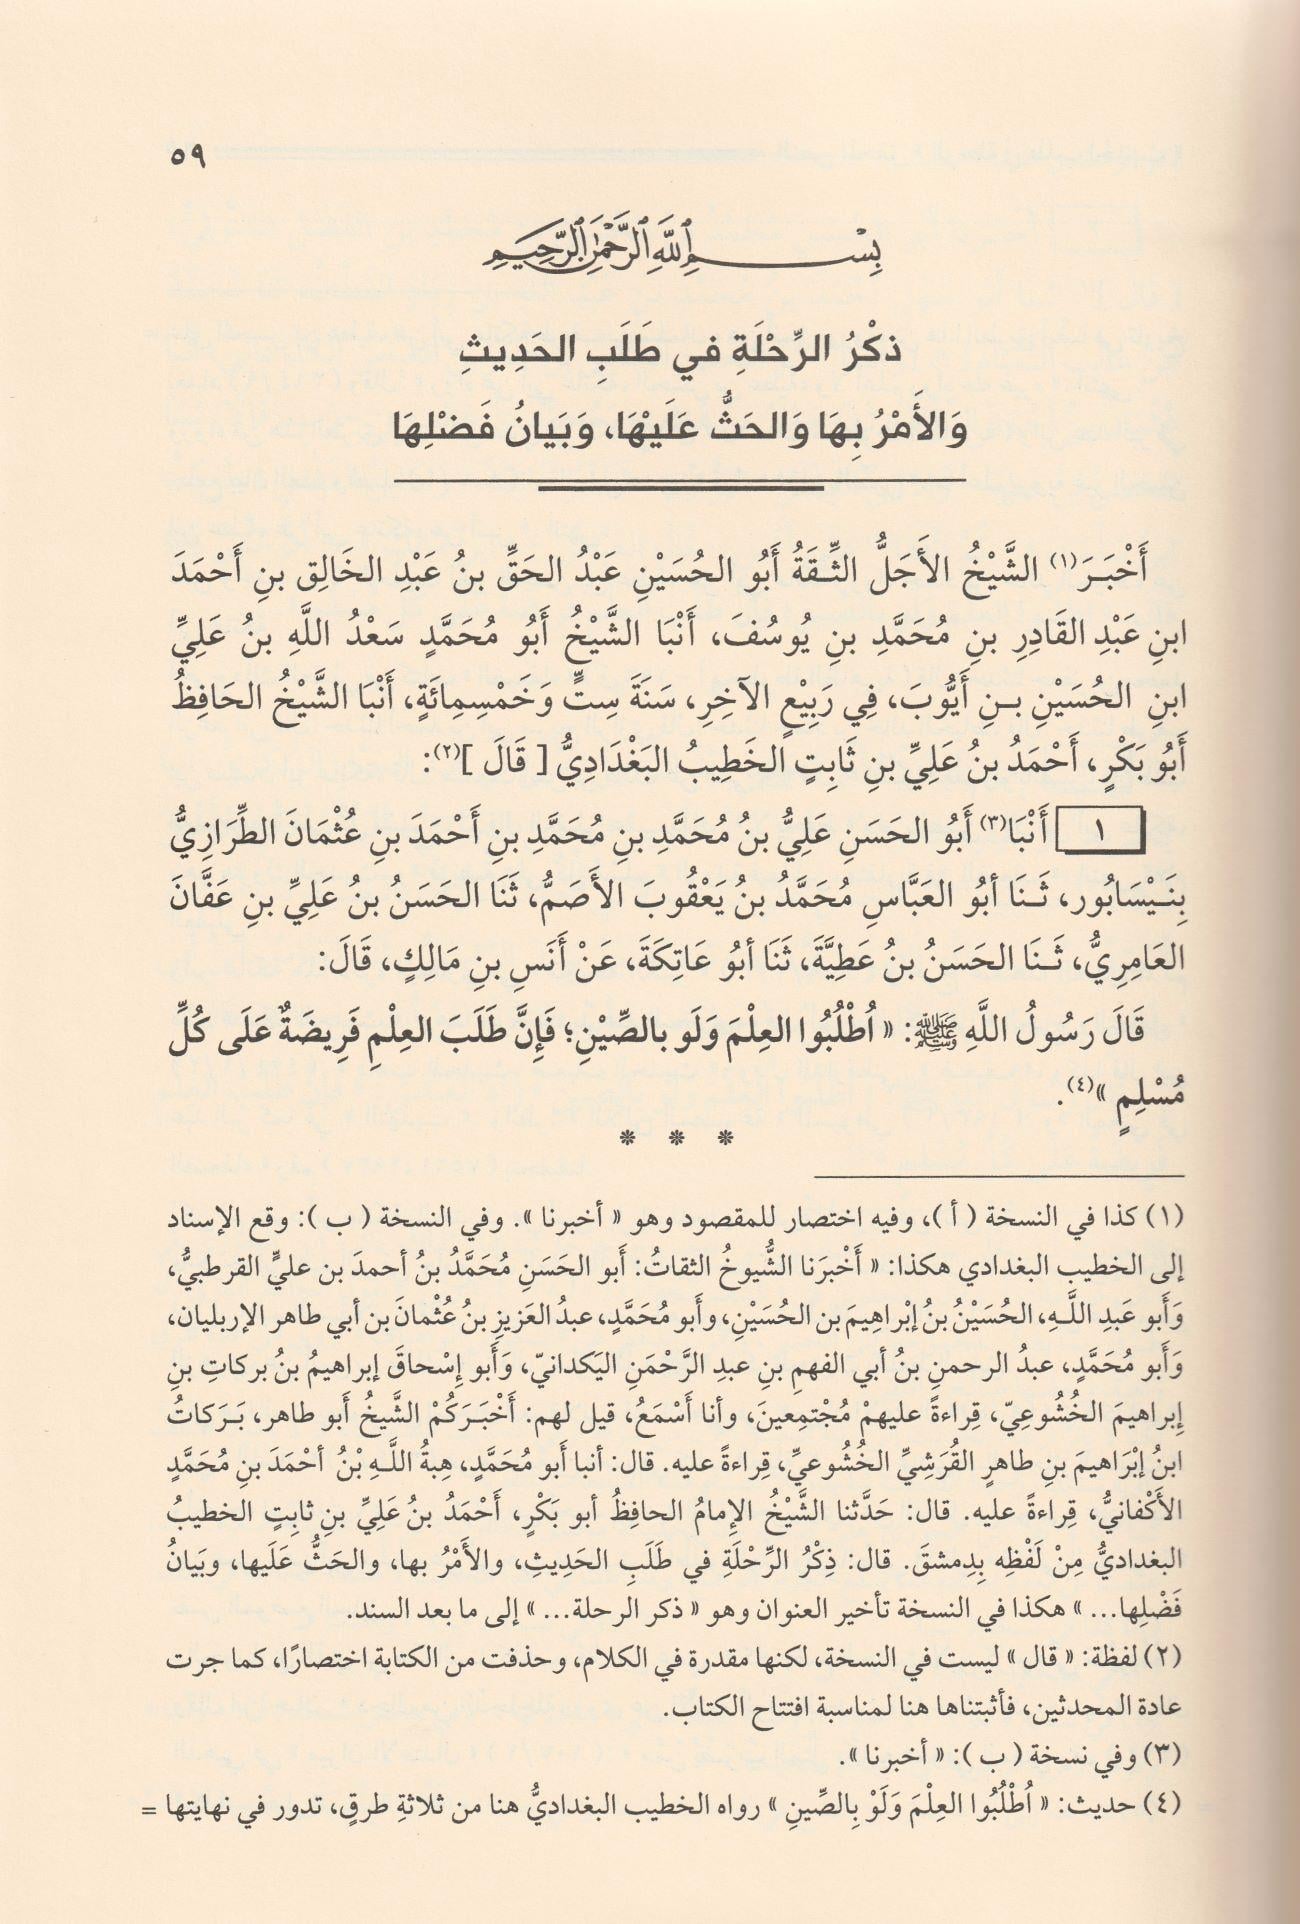 ٥٩
بِسْمِ اللَّهِ الرَّحْمَٰنِ الرَّحِيمِ
ذِكْرُ الرِّحْلَةِ في طَلَبِ الحَدِيثِ
وَالأَمْرُ بِهَا وَالحَثُّ عَلَيْهَا، وَبَيَانُ فَضْلِهَا
أَخْبَـرَ(١) الشَّيْخُ الأَجَلُّ الثِّـقَةُ أَبُو الحُسَيْنِ عَبْدُ الحَقِّ بنُ عَبْدِ الخَالِقِ بنِ أَحْمَدَ
ابنِ عَبْدِ القَادِرِ بنِ مُحَمَّدِ بنِ يُوسُفَ، أَنْبَا الشَّيْخُ أَبُو مُحَمَّدٍ سَعْدُ اللَّهِ بنُ عَلِيِّ
ابنِ الحُسَيْنِ بـنِ أَيُّوبَ، فِي رَبِيْعٍ الآخِرِ، سَنَةَ سِتٍّ وَخَمْسِمِائَةٍ، أَنْبَا الشَّيْخُ الحَافِظُ
أَبُو بَكْرٍ، أَحْمَدُ بنُ عَلِيِّ بنِ ثَابِتٍ الخَطِيبُ البَغْدَادِيُّ [ قَالَ ](٢):
١ أَنْبَا(٣) أَبُو الحَسَنِ عَلِيُّ بنُ مُحَمَّدِ بنِ مُحَمَّدِ بنِ أَحْمَدَ بنِ عُثْمَانَ الطِّرَازِيُّ
بِنَـيْسَابُور، ثَـنَا أبُو العَبَّاسِ مُحَمَّدُ بنُ يَعْقُوبَ الأَصَمُّ، ثَنَا الحَسَنُ بنُ عَلِيِّ بنِ عَفَّانَ
العَامِرِيُّ، ثَـنَا الحَسَنُ بنُ عَطِيَّةَ، ثَنَا أبُو عَاتِكَةَ، عَنْ أَنَسِ بنِ مَالِكٍ، قَالَ:
قَالَ رَسُولُ اللَّهِ ﷺ: « اُطْلُبُوا العِلْمَ وَلَو بالصِّيْنِ؛ فَإِنَّ طَلَبَ العِلْمِ فَرِيضَةٌ عَلَى كُلِّ
مُسْلِمٍ »(٤).
* * *
(١) كذا في النسخة ( أ )، وفيه اختصار للمقصود وهو « أخبرنا ». وفي النسخة ( ب ): وقع الإسناد
إلى الخطيب البغدادي هكذا: « أَخْبرَنا الشُّيوخُ الثقاتُ: أَبو الحَسَنِ مُحَمَّدُ بنُ أحمدَ بن عليٍّ القرطبيُّ،
وَأَبو عَبدِ اللَّـهِ، الحُسَيْنُ بنُ إبْراهِيمَ بن الحُسَيْنِ، وأَبو مُحَمَّدٍ، عبدُ العَزيزِ بنُ عُثْمانَ بن أبي طاهر الإربليان،
وَأَبو مُحَمَّدٍ، عبدُ الرحمنِ بنُ أبي الفهمِ بنِ عبدِ الرَّحْمَنِ اليَكدانيّ، وَأَبو إِسْحاقَ إبراهيمُ بنُ بركاتِ بنِ
إِبراهيمَ الخُشُوعِيّ، قِراءةً عليهمْ مُجْتمِعينَ، وأنا أَسْمَعُ، قيل لهم: أَخْبَـرَكُمْ الشَّيخُ أَبو طاهر، بَـرَكاتُ
ابنُ إبْرَاهِيمَ بنِ طاهرٍ القُرَشِيِّ الخُشُوعيِّ، قِراءةً عليه. قال: أنبا أَبو مُحَمَّدٍ، هِبةُ اللَّـهِ بْنُ أحْمَدَ بنِ مُحَمَّدٍ
الأَكْفانيُّ، قِراءةً عليه. قال: حَدَّثنا الشَّيْخُ الإِمامُ الحافِظُ أبو بَكْرٍ، أَحْمَدُ بنُ عَلِيِّ بنِ ثابِتٍ الخطيبُ
البغداديُّ مِنْ لَفْظِه بِدِمشقَ. قال: ذِكْرُ الرِّحْلَةِ في طَلَبِ الحَدِيثِ، والأَمْرُ بها، والحَثُّ عَلَيها، وبَيانُ
فَضْلِها... » هكذا في النسخة تأخير العنوان وهو « ذكر الرحلة... » إلى ما بعد السند.
(٢) لفظة: « قال » ليست في النسخة، لكنها مقدرة في الكلام، وحذفت من الكتابة اختصارًا، كما جرت
عادة المحدثين، فأثبتناها هنا لمناسبة افتتاح الكتاب.
(٣) وفي نسخة ( ب ): « أخبرنا ».
(٤) حديث: « اُطْلُبُوا العِلْمَ وَلَوْ بِالصِّينِ » رواه الخطيب البغداديُّ هنا من ثلاثةِ طرقٍ، تدور في نهايتها =